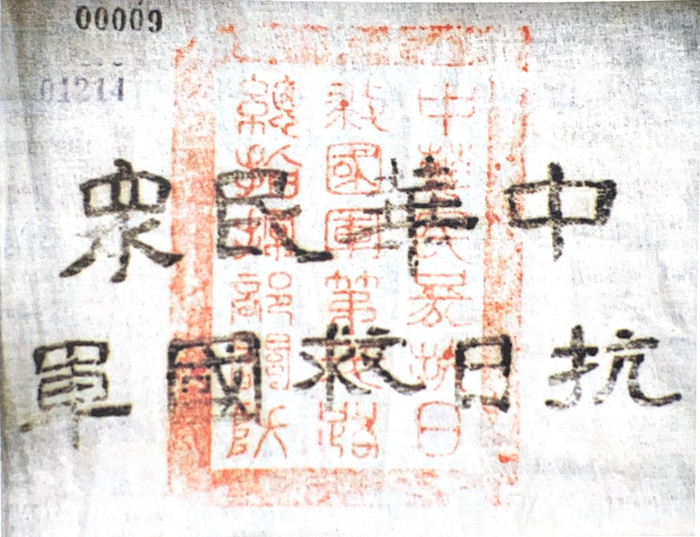 00009
01214
中華民衆
抗日救國軍
中華民眾抗日
救國軍第路
總指揮部關防